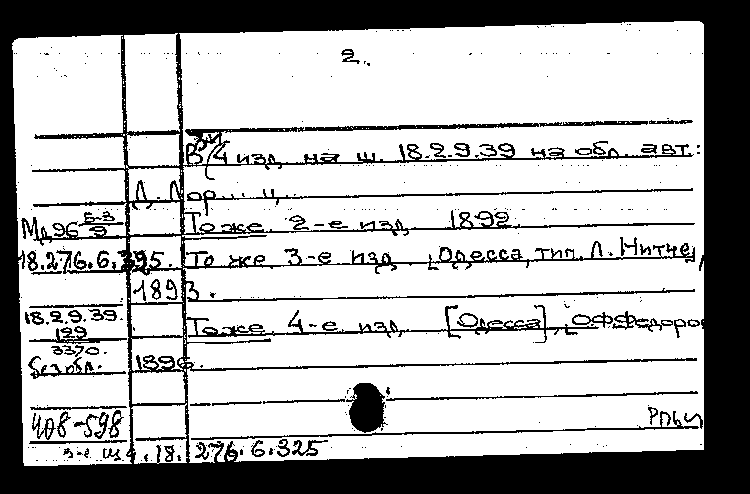 2.
В 4 изд. на ш. 18.2.9.39 на обл. авт.:
Д. Мор... ц..
Мд96 5-3/9 То же. 2-е изд. 1892.
18.276.6.395. То же 3-е изд. [Одесса, тип. Л. Нитче],
1893.
18.2.9.39. То же. 4-е изд. [Одесса], [
129
3370. 1896.
без обл.
408-598
3-е из 18.276.6.325